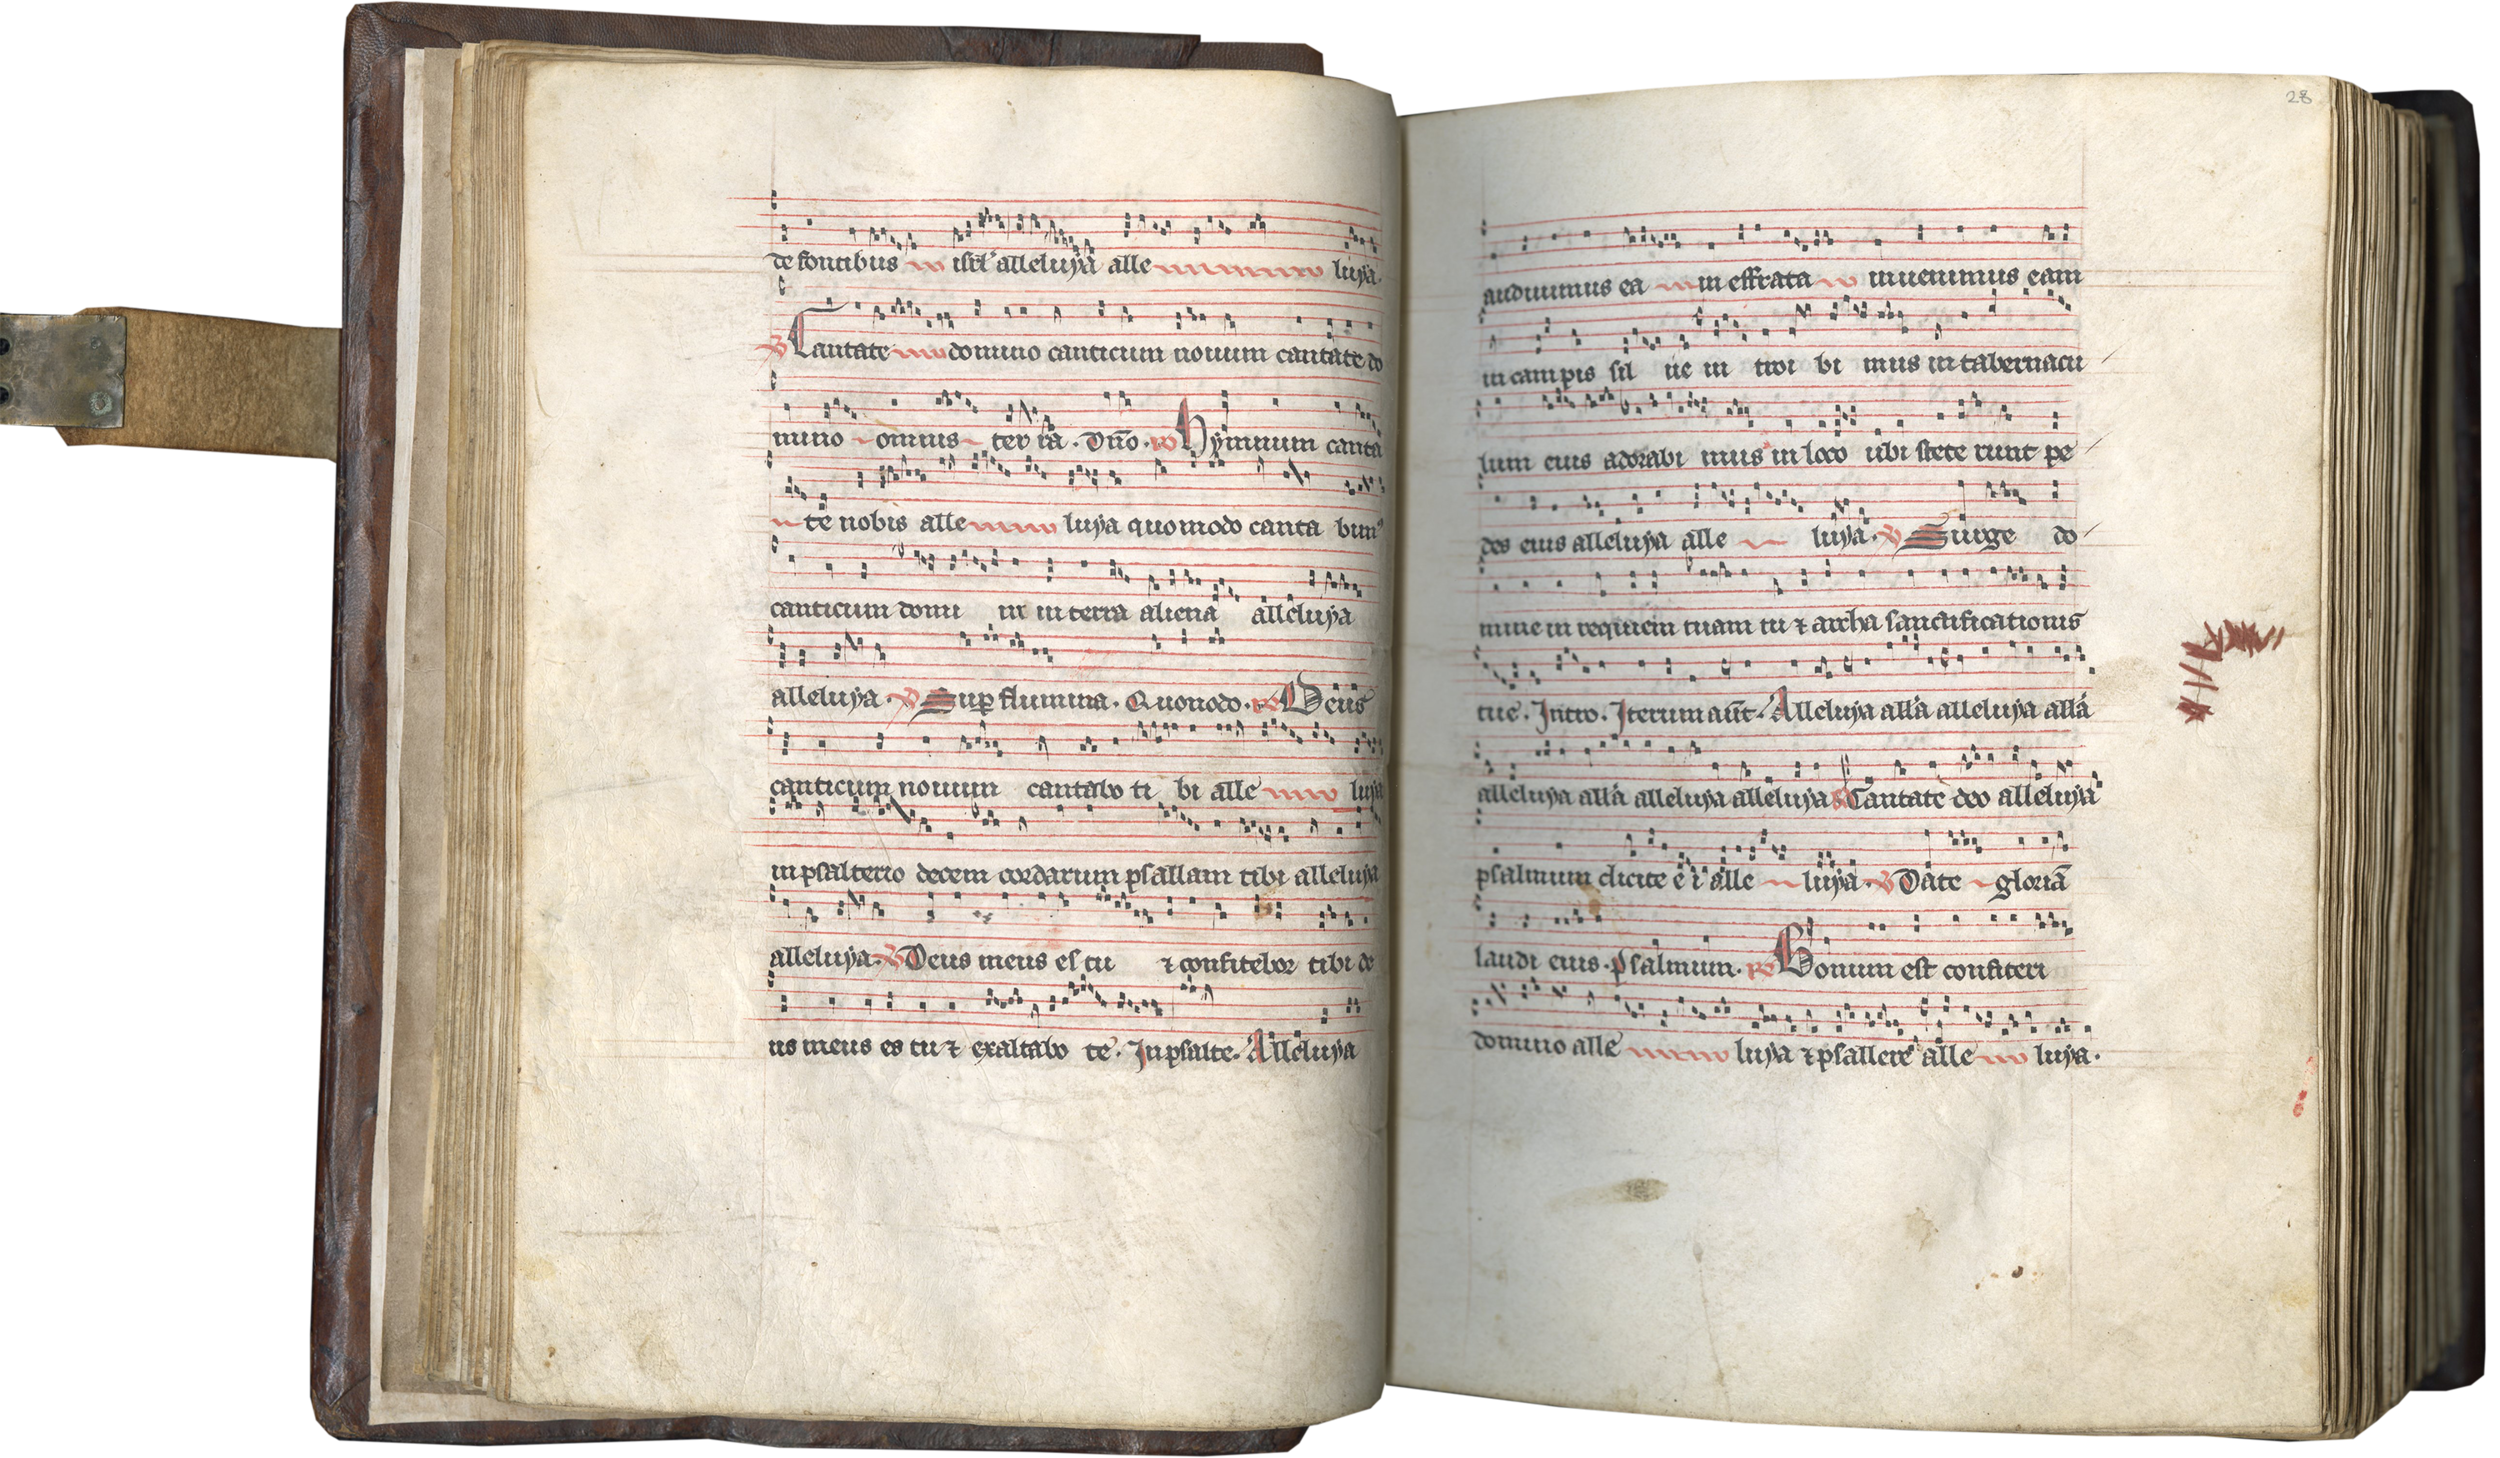 de fontibus isrl' alleluya alle luya.
V Cantate domino canticum nouum cantate do
mino omnis ter ra. Dño. R Hymnum canta
te nobis alle luya quomodo canta bim'
canticum domi ni in terra aliena alleluya
alleluya. V Sup flumina. Quomodo. R Deus
canticum nouum cantabo ti bi alle luya
in psalterio decem cordarum psallam tibi alleluya
alleluya. V Deus meus es tu ⁊ confitebor tibi de
us meus es tu ⁊ exaltabo te. In psalte. Alleluya
28
audiuimus ea in effrata inuenimus eam
in campis sil ue in troi bi mus in tabernacu
lum eius adorabi mus in loco ubi stete runt pe
des eius alleluya alle luya. V Surge do
mine in requiem tuam tu ⁊ archa sanctificationis
tue. Intro. Iterum aūt. Alleluya alla alleluya alla
alleluya alla alleluya alleluya R Cantate deo alleluya
psalmum dicite e i alle luya. V Date gloriā
laudi eius. psalmum. R Bonum est confiteri
domino alle luya ⁊ psallere alle luya.